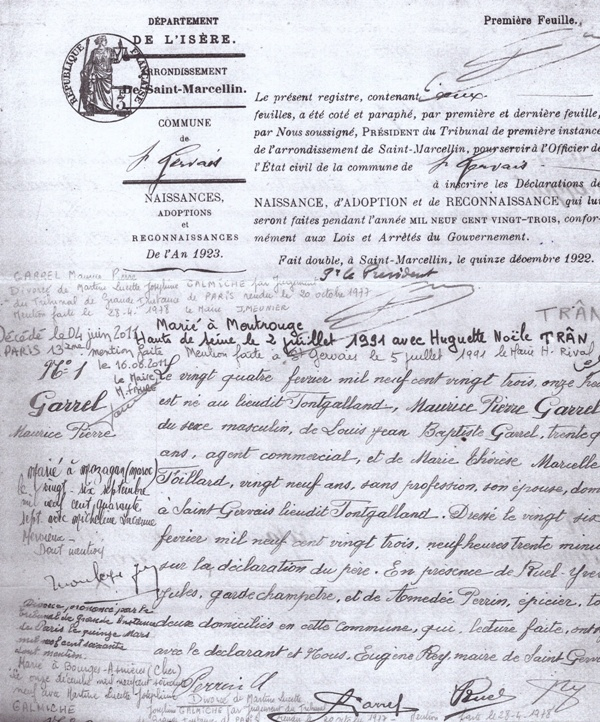 Première Feuille.
DÉPARTEMENT
DE L'ISÈRE.
RÉPUBLIQUE FRANÇAISE
ARRONDISSEMENT
De Saint-Marcellin.
COMMUNE
de
St Gervais
NAISSANCES,
ADOPTIONS
et
RECONNAISSANCES
De l'An 1923.
Le présent registre, contenant
feuilles, a été coté et paraphé, par première et dernière feuille,
par Nous soussigné, PRÉSIDENT du Tribunal de première instance
de l'arrondissement de Saint-Marcellin, pour servir à l'Officier de
l'État civil de la commune de St Gervais
à inscrire les Déclarations de
NAISSANCE, d'ADOPTION et de RECONNAISSANCE qui lui
seront faites pendant l'année MIL NEUF CENT VINGT-TROIS, confor-
mément aux Lois et Arrêtés du Gouvernement.
Fait double, à Saint-Marcellin, le quinze décembre 1922.
Pr le Président
GARREL Maurice Pierre
Divorcé de Martine Lucette Josephine GALMICHE par Jugement
du Tribunal de Grande Instance de PARIS rendu le 20 octobre 1977
Mention faite le 28-4-1978 le Maire J. MEUNIER
TRÂN
Marié à Montrouge
Hauts de Seine le 2 juillet 1991 avec Huguette Noële TRÂN
Mention faite à St Gervais le 5 juillet 1991 le Maire H. Rival
Décédé le 04 juin 2011
PARIS 13ème mention faite
le 16.06.2011
le Maire
N° 1
Garrel
Maurice Pierre
Le vingt quatre février mil neuf cent vingt trois, onze
est né au lieudit Tontgalland, Maurice Pierre Garrel
du sexe masculin, de Louis Jean Baptiste Garrel, trente
ans, agent commercial, et de Marie Thérèse Marcelle
Toillard, vingt neuf ans, sans profession, son épouse,
à Saint Gervais lieudit Tontgalland. Dressé le vingt six
février mil neuf cent vingt trois, neuf heures trente
sur la déclaration du père. En présence de Ruel
Jules, garde champêtre, et de Amédée Perrin, épicier,
deux domiciliés en cette commune, qui, lecture faite, ont
avec le déclarant et Nous, Eugène Rey, maire de Saint
Marié à Mazagan (Maroc)
le vingt six septembre
mil neuf cent quarante
sept avec Micheline
Dont mention
Divorce prononcé par le
tribunal de grande Instance
de Paris le quinze Mars
mil neuf cent soixante
dont mention
Marié à Bourges-Asnières (Cher)
le onze décembre mil neuf cent soixante
neuf avec Martine Lucette Josephine
GALMICHE
Perrin A
Garrel
Ruel
Rey
Divorcé de Martine Lucette
Josephine GALMICHE par Jugement du Tribunal
rendu le 20 octobre 1977
28-4-1978